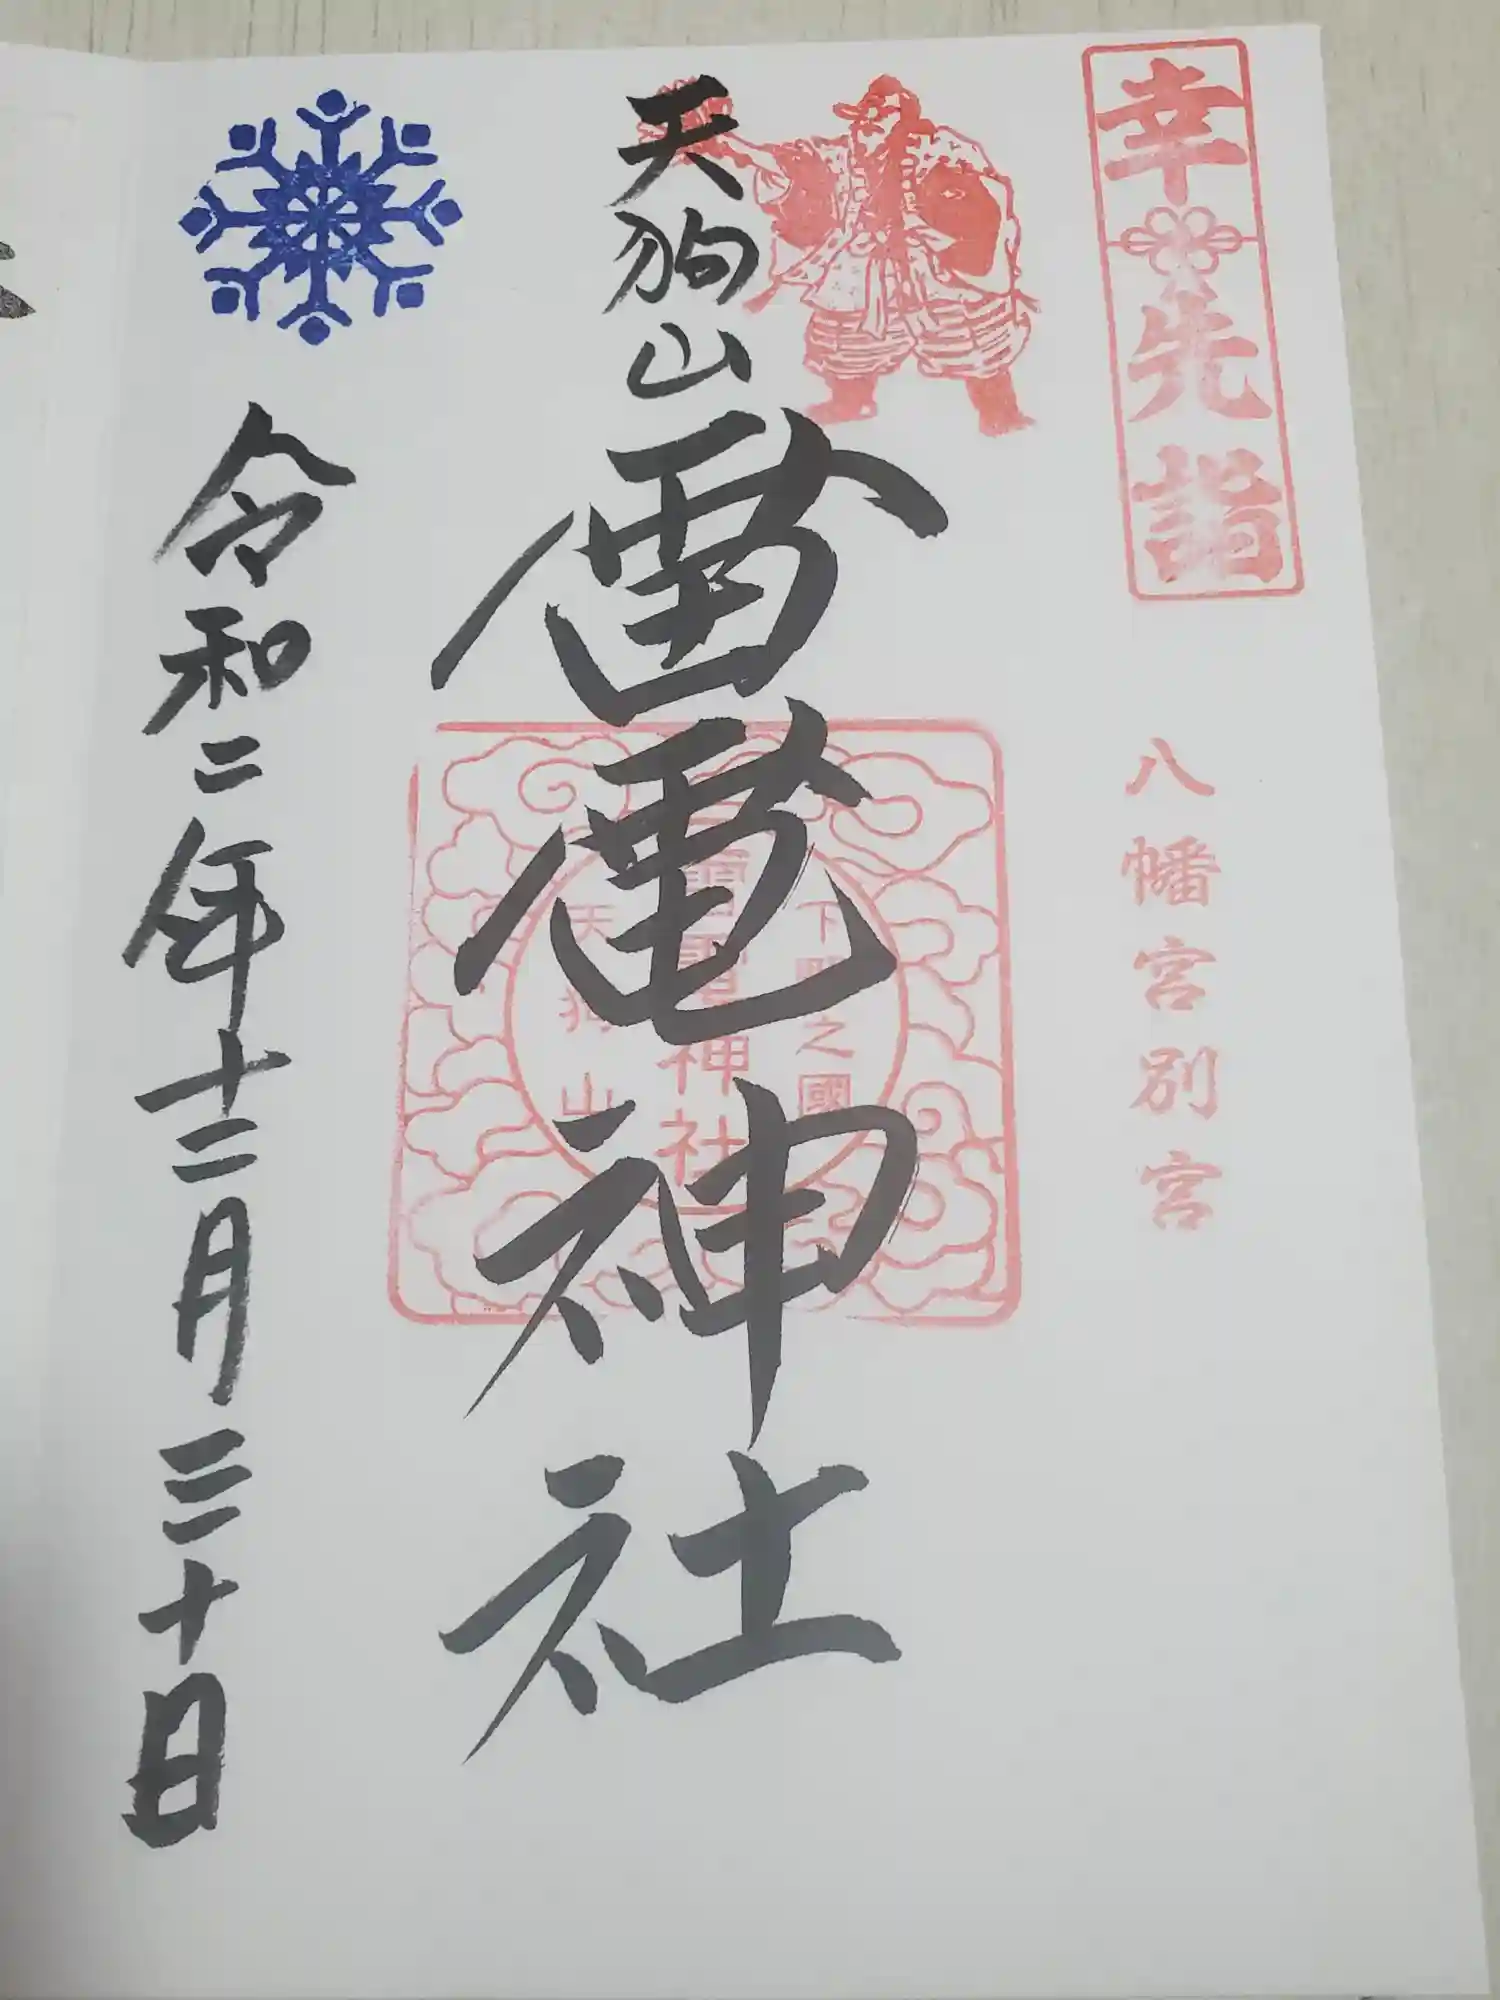 幸先詣
八幡宮別宮
天狗山
雷電神社
下野之國
雷電神社
天狗山
令和二年十二月三十日